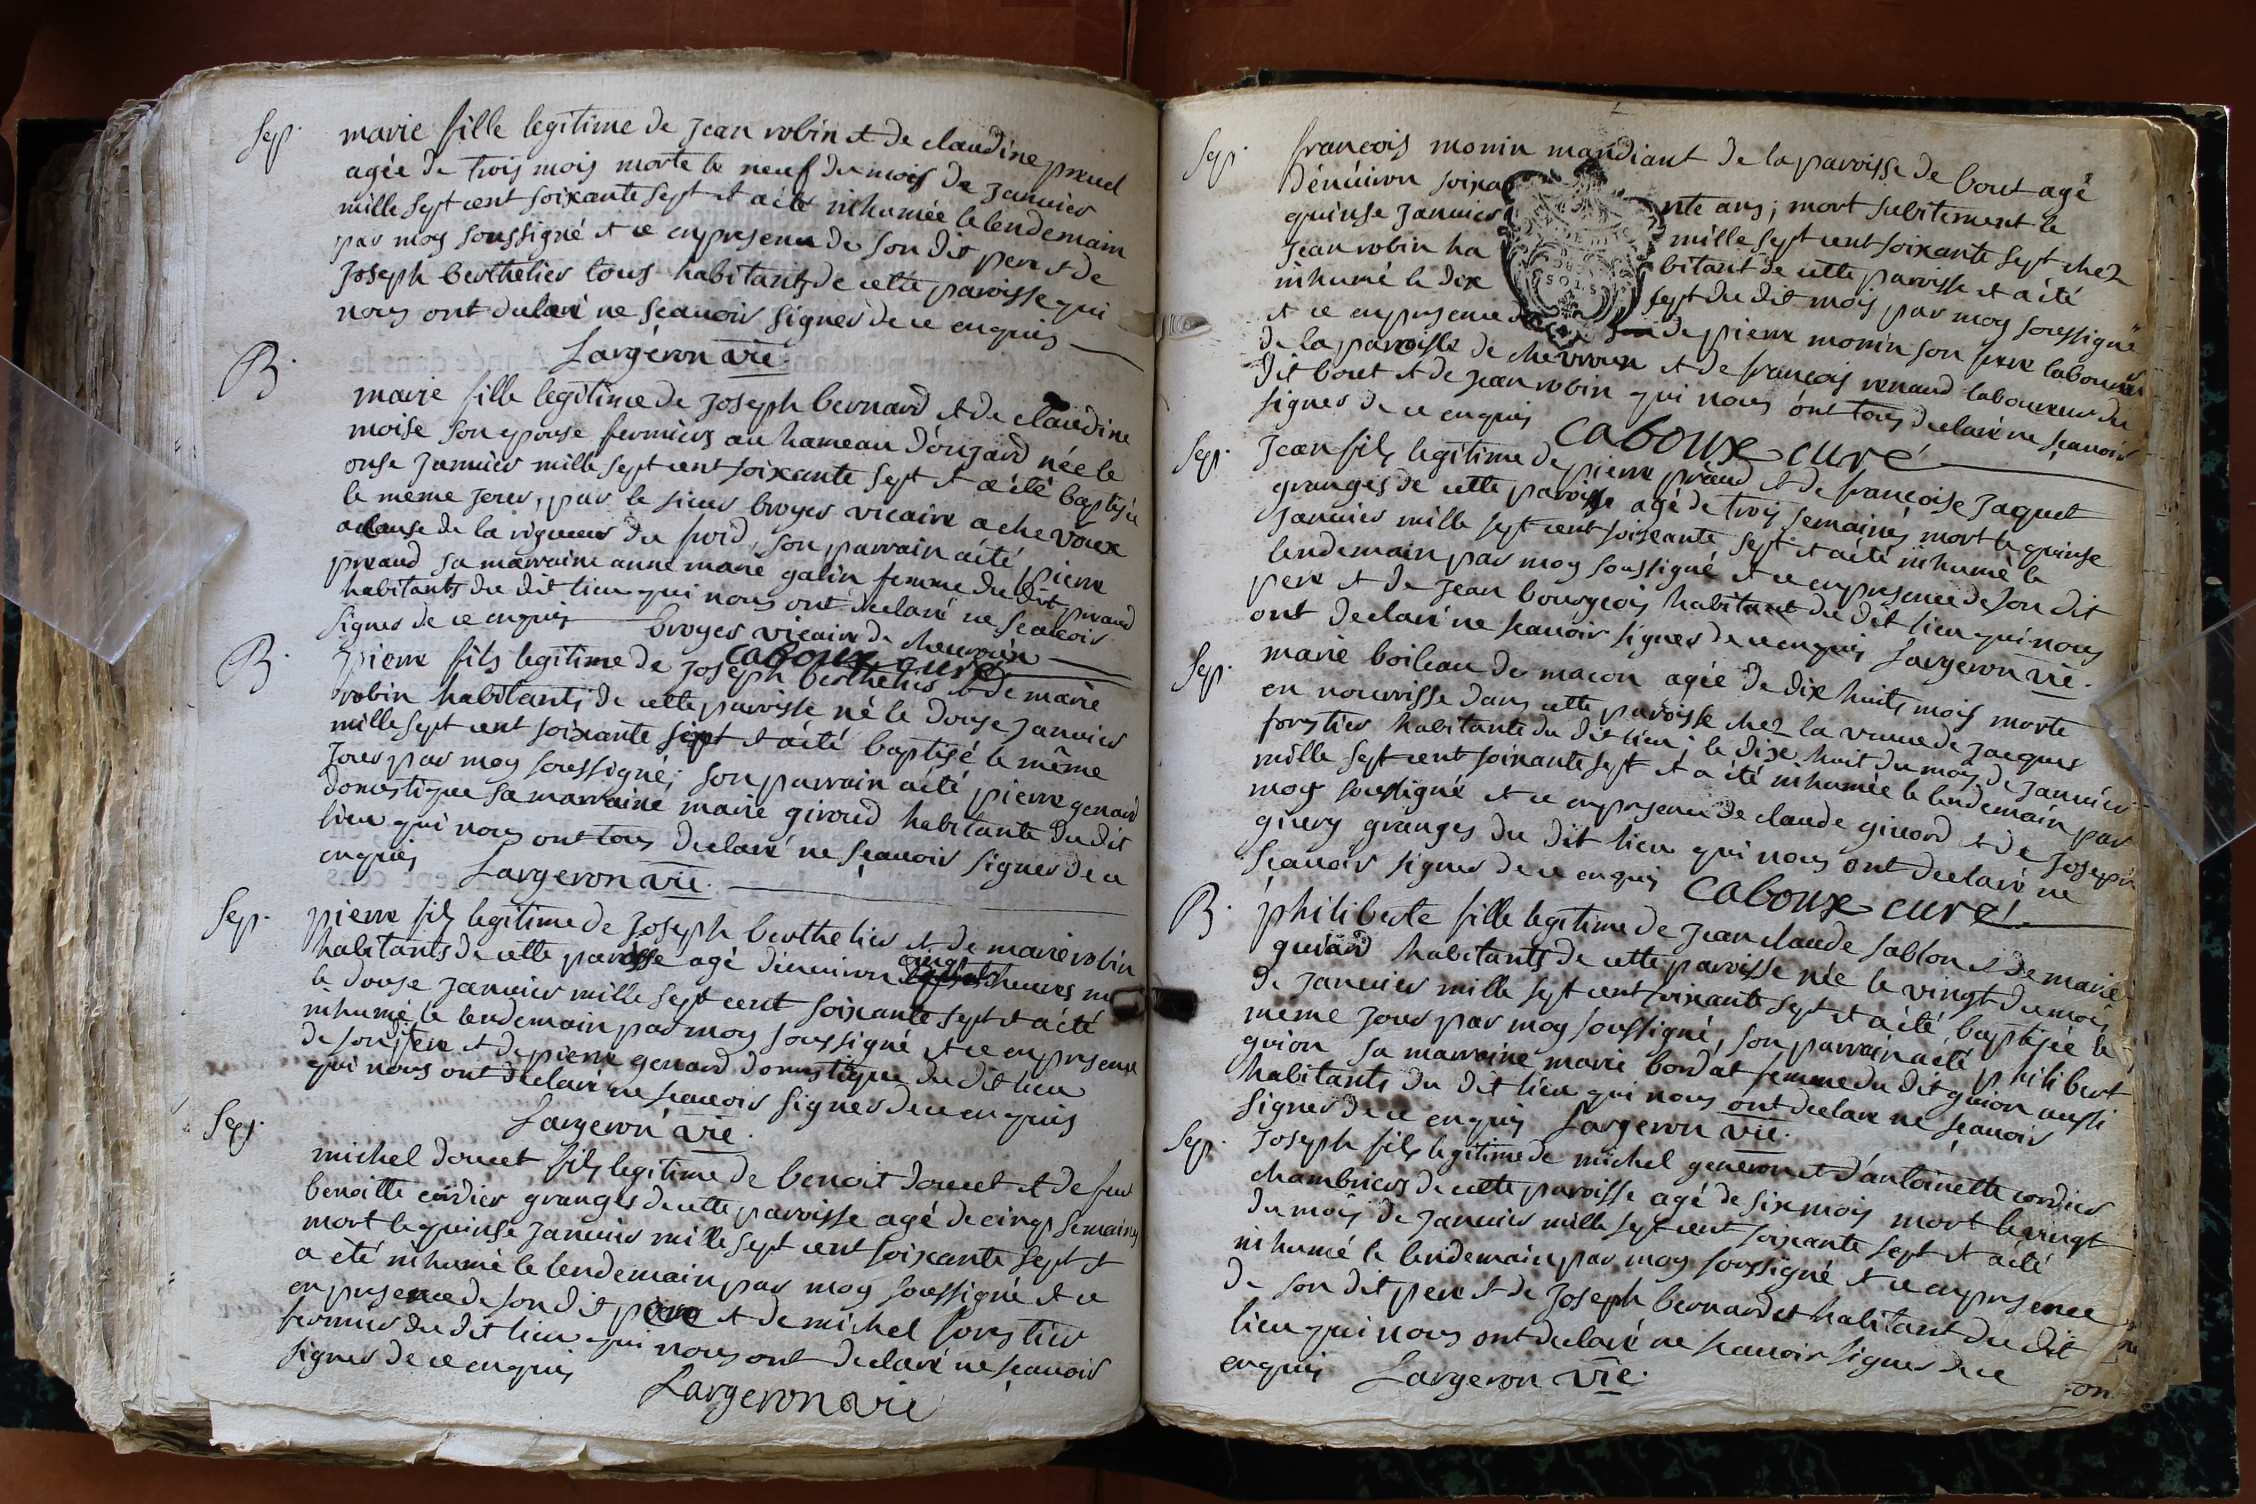 Sep. marie fille legitime de jean robin et de claudine preud
agée de trois mois morte le neuf du mois de janvier
mille sept cent soixante sept et a été inhumée le lendemain
par moy soussigné et ce en presence de son dit pere et de
joseph berthelier tous habitants de cette paroisse qui
nous ont declaré ne sçauoir signer de ce enquis
Largeron vic.
B. marie fille legitime de joseph bernard et de claudine
moise son epouse fermiers au hameau d'
née le
onse januier mille sept cent soixante sept et a été baptisée
le meme jour, par le sieur broyer vicaire a chevroux
a cause de la rigueur du froid, son parrain a été pierre
preaud sa marraine anne marie galin femme du dit preaud
habitants du dit lieu qui nous ont declaré ne sçauoir
signer de ce enquis broyer vicaire de chevroux
caboux curé
B. pierre fils legitime de joseph berthelier et de marie
robin habitants de cette paroisse né le douse januier
mille sept cent soixante sept et a été baptisé le même
jour par moy soussigné; son parrain a été pierre genard
domestique sa marraine marie giroud habitante du dit
lieu qui nous ont tous declaré ne sçauoir signer de ce
enquis Largeron vic.
Sep. pierre fils legitime de joseph berthelier et de marie robin
habitants de cette paroisse agé d'enuiron cinq heures
le douse januier mille sept cent soixante sept et a été
inhumé le lendemain par moy soussigné et ce en presence
de son dit pere et de pierre genard domestique du dit lieu
qui nous ont declaré ne sçauoir signer de ce enquis
Largeron vic.
Sep. michel doucet fils legitime de benoit doucet et de feue
benoitte cordier granger de cette paroisse agé de cinq semaines
mort le quinse januier mille sept cent soixante sept et
a été inhumé le lendemain par moy soussigné et ce
en presence de son dit pere et de michel forestier
fermier du dit lieu qui nous ont declaré ne sçauoir
signer de ce enquis
Largeron vic
Sep. francois monin mandiant de la paroisse de bout agé
d'enuiron soixante ans; mort subitement le
quinse januier mille sept cent soixante sept chez
jean robin habitant de cette paroisse et a été
inhumé le dix sept du dit mois par moy soussigné
et ce en presence de pierre monin son frere laboureur
de la paroisse de chevroux et de francois renaud laboureur du
dit bout et de jean robin qui nous ont tous declaré ne sçauoir
signer de ce enquis caboux curé
Sep. jean fils legitime de pierre preaud et de francoise jaquet
granger de cette paroisse agé de trois semaines, mort le quinse
januier mille sept cent soixante sept et a été inhumé le
lendemain par moy soussigné et ce en presence de son dit
pere et de jean bourgeois habitant du dit lieu qui nous
ont declaré ne sçauoir signer de ce enquis Largeron vic.
Sep. marie boileau de macon agée de dix huits mois morte
en nourrisse dans cette paroisse chez la veuve de jacques
forestier habitante du dit lieu; le dix huit du mois de januier
mille sept cent soixante sept et a été inhumée le lendemain par
moy soussigné et ce en presence de claude giuord et de joseph
guery granger du dit lieu qui nous ont declaré ne
sçauoir signer de ce enquis caboux curé
B. philiberte fille legitime de jean claude sablon et de marie
guerard habitants de cette paroisse née le vingt du mois
de januier mille sept cent soixante sept et a été baptisée le
même jour par moy soussigné, son parrain a été philibert
guion sa marraine marie bordat femme du dit guion aussi
habitants du dit lieu qui nous ont declaré ne sçauoir
signer de ce enquis Largeron vic.
Sep. joseph fils legitime de michel generon et d'antoinette cordier
chambrier de cette paroisse agé de six mois mort le vingt
du mois de januier mille sept cent soixante sept et a été
inhumé le lendemain par moy soussigné et ce en presence
de son dit pere et de joseph bernardet habitant du dit
lieu qui nous ont declaré ne sçauoir signer de ce
enquis Largeron vic.